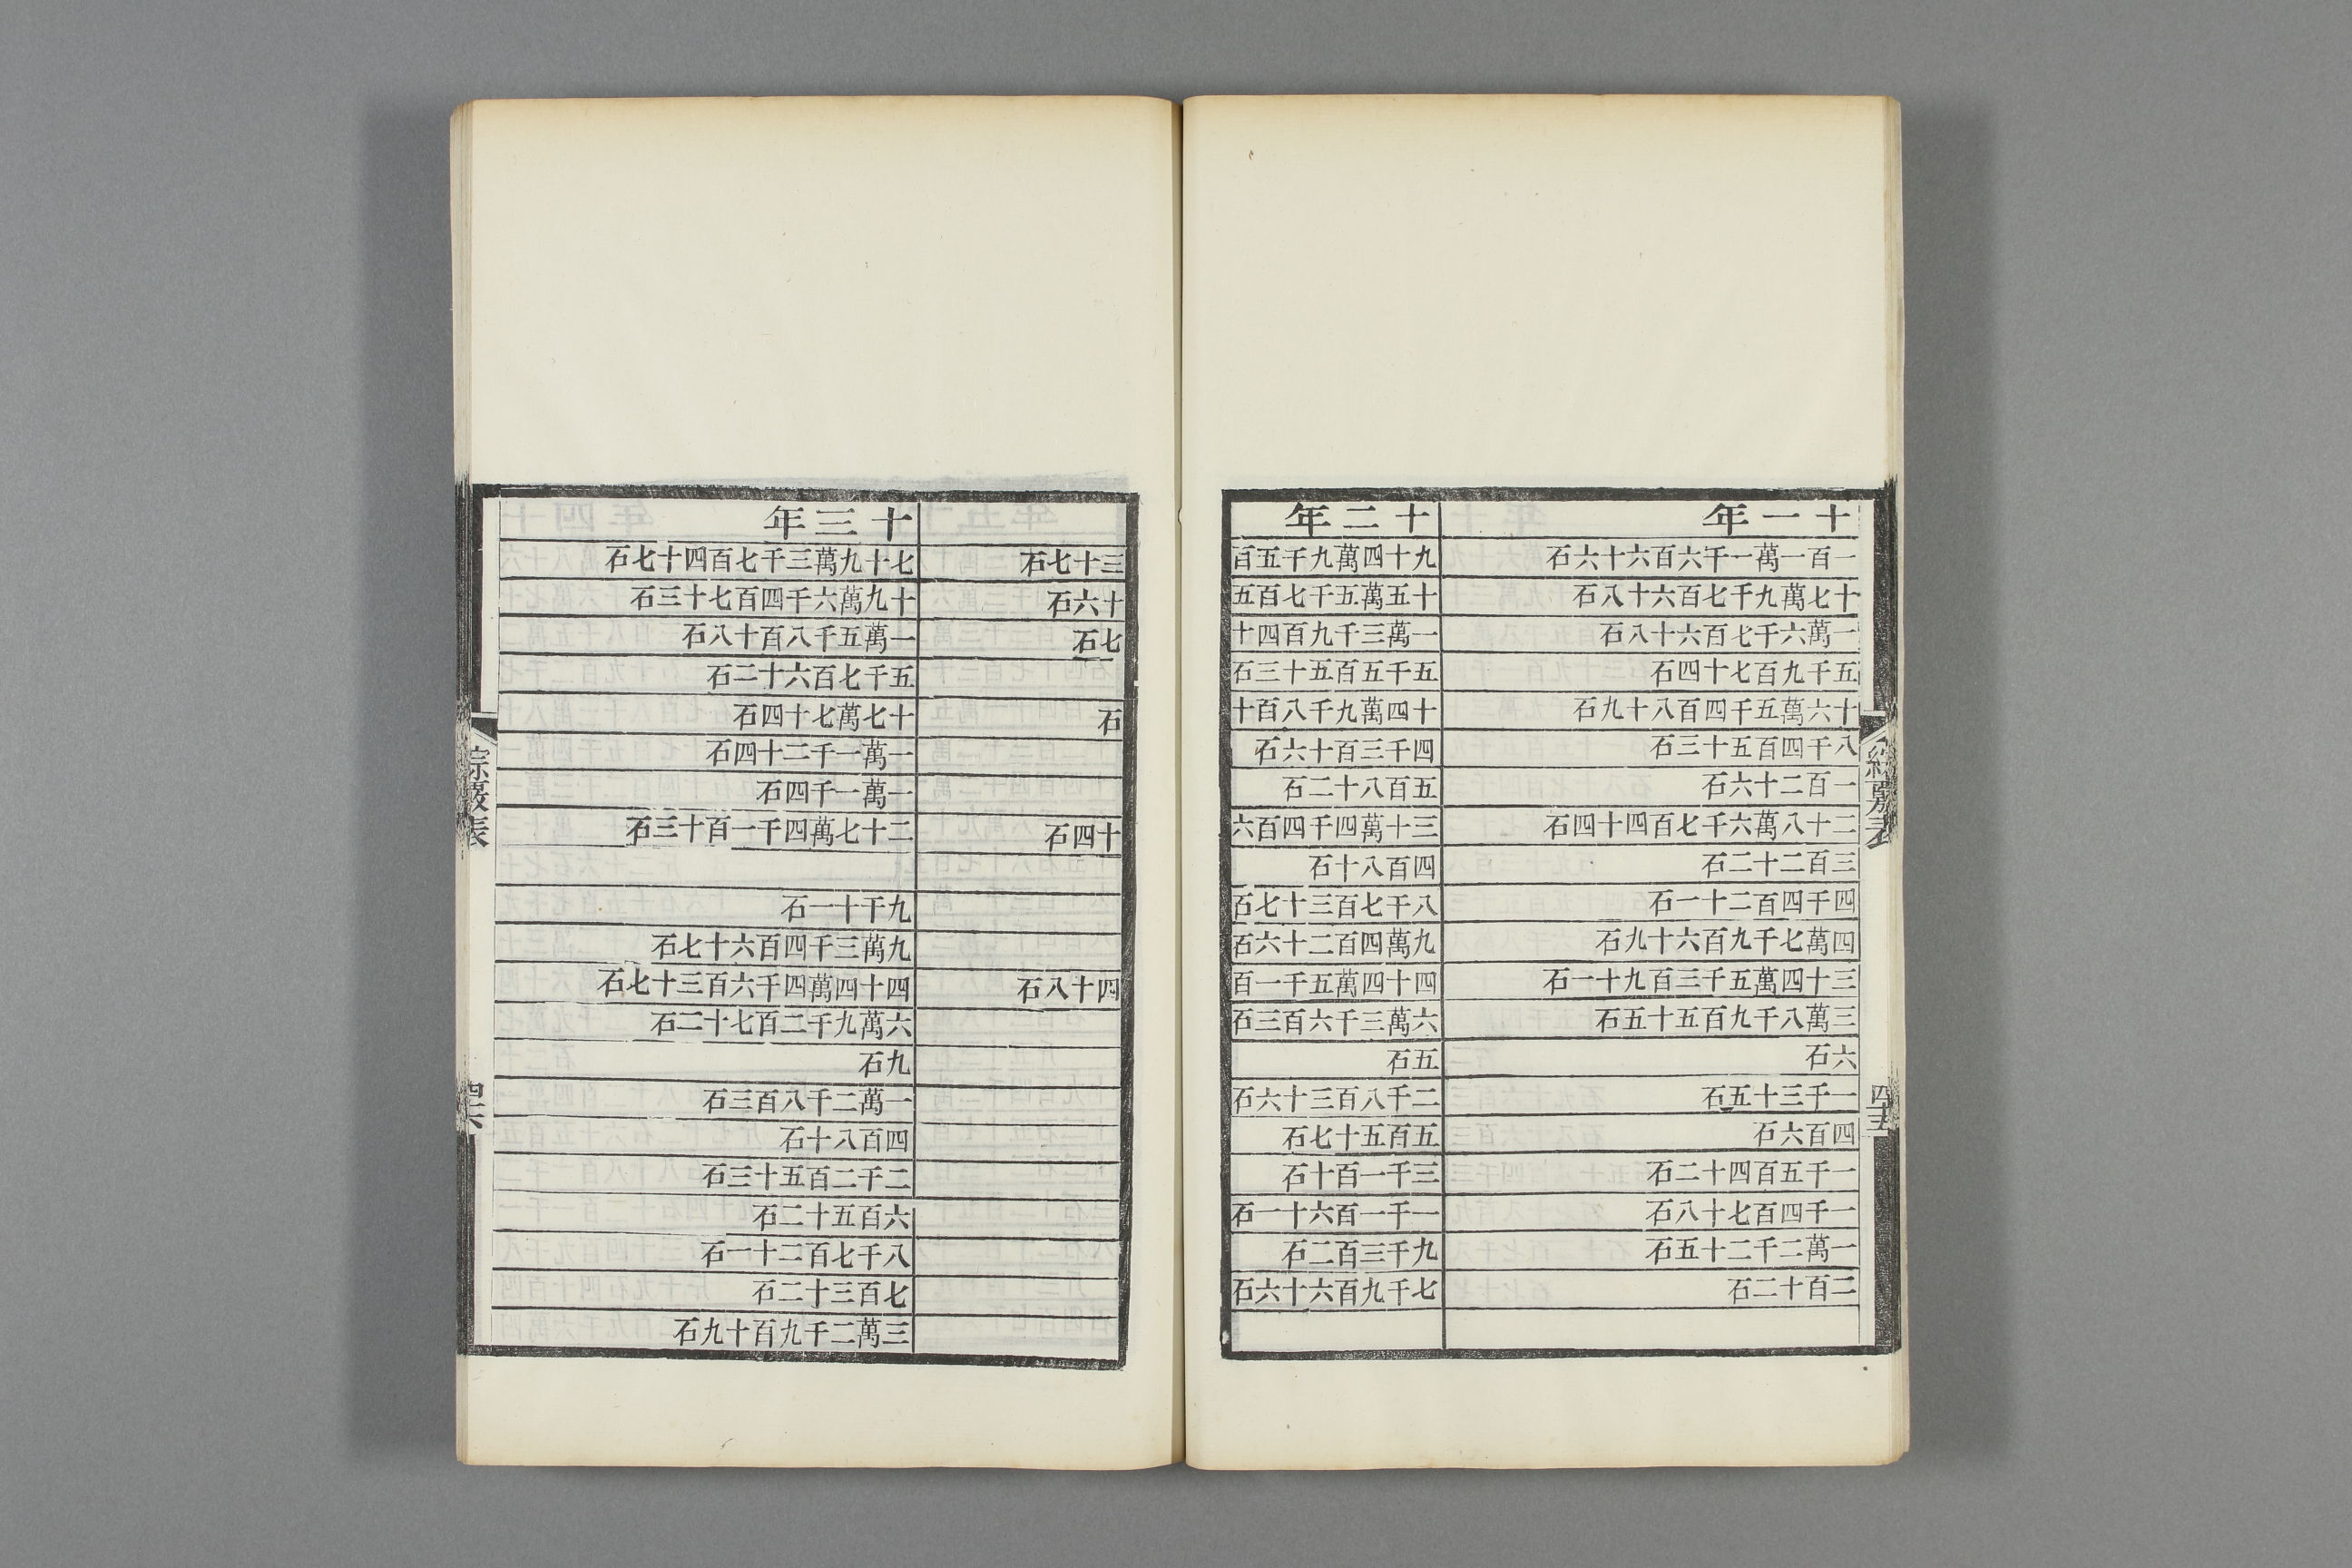 十一年
一百一萬一千六百六十六石
十七萬九千七百六十八石
一萬六千七百六十八石
五千九百七十四石
十六萬五千四百八十九石
八千四百五十三石
一百二十六石
二十八萬六千七百四十四石
三百二十二石
四千四百二十一石
四萬七千九百六十九石
三十四萬五千三百九十一石
三萬八千九百五十五石
六石
一千三十五石
四百六石
一千五百四十二石
一千四百七十八石
一萬二千二十五石
二百十二石
十二年
九十四萬九千五百
十五萬五千七百五
一萬三千九百四十
五千五百五十三石
十四萬九千八百十
四千三百十六石
五百八十二石
三十萬四千四百六
四百八十石
八千七百三十七石
九萬四百二十六石
四十四萬五千一百
六萬三千六百三石
五石
二千八百三十六石
五百五十七石
三千一百十石
一千一百六十一石
九千三百二石
七千九百六十六石
三十七石
十六石
七石
石
十四石
四十八石
十三年
七十九萬三千七百四十七石
十九萬六千四百七十三石
一萬五千八百十八石
五千七百六十二石
十七萬七十四石
一萬一千二十四石
一萬一千四石
二十七萬四千一百十三石
九千十一石
九萬三千四百六十七石
四十四萬四千六百三十七石
六萬九千二百七十二石
九石
一萬二千八百三石
四百八十石
二千二百五十三石
六百五十二石
八千七百二十一石
七百三十二石
三萬二千九百十九石
綜覈表